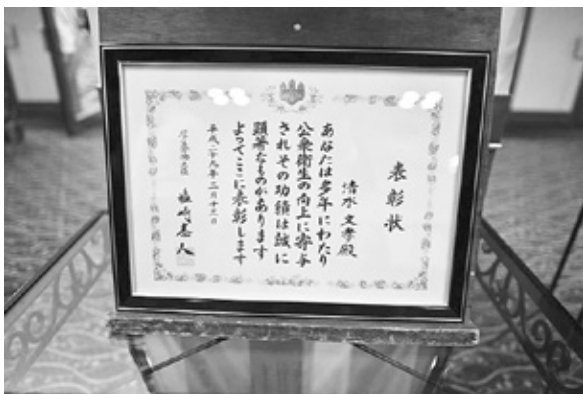 表彰状
清水文孝殿
あなたは多年にわたり
公衆衛生の向上に寄与
されその功績は誠に
顕著なものがあります
よってここに表彰します
平成二十九年三月十三日
厚生労働大臣 塩崎恭久